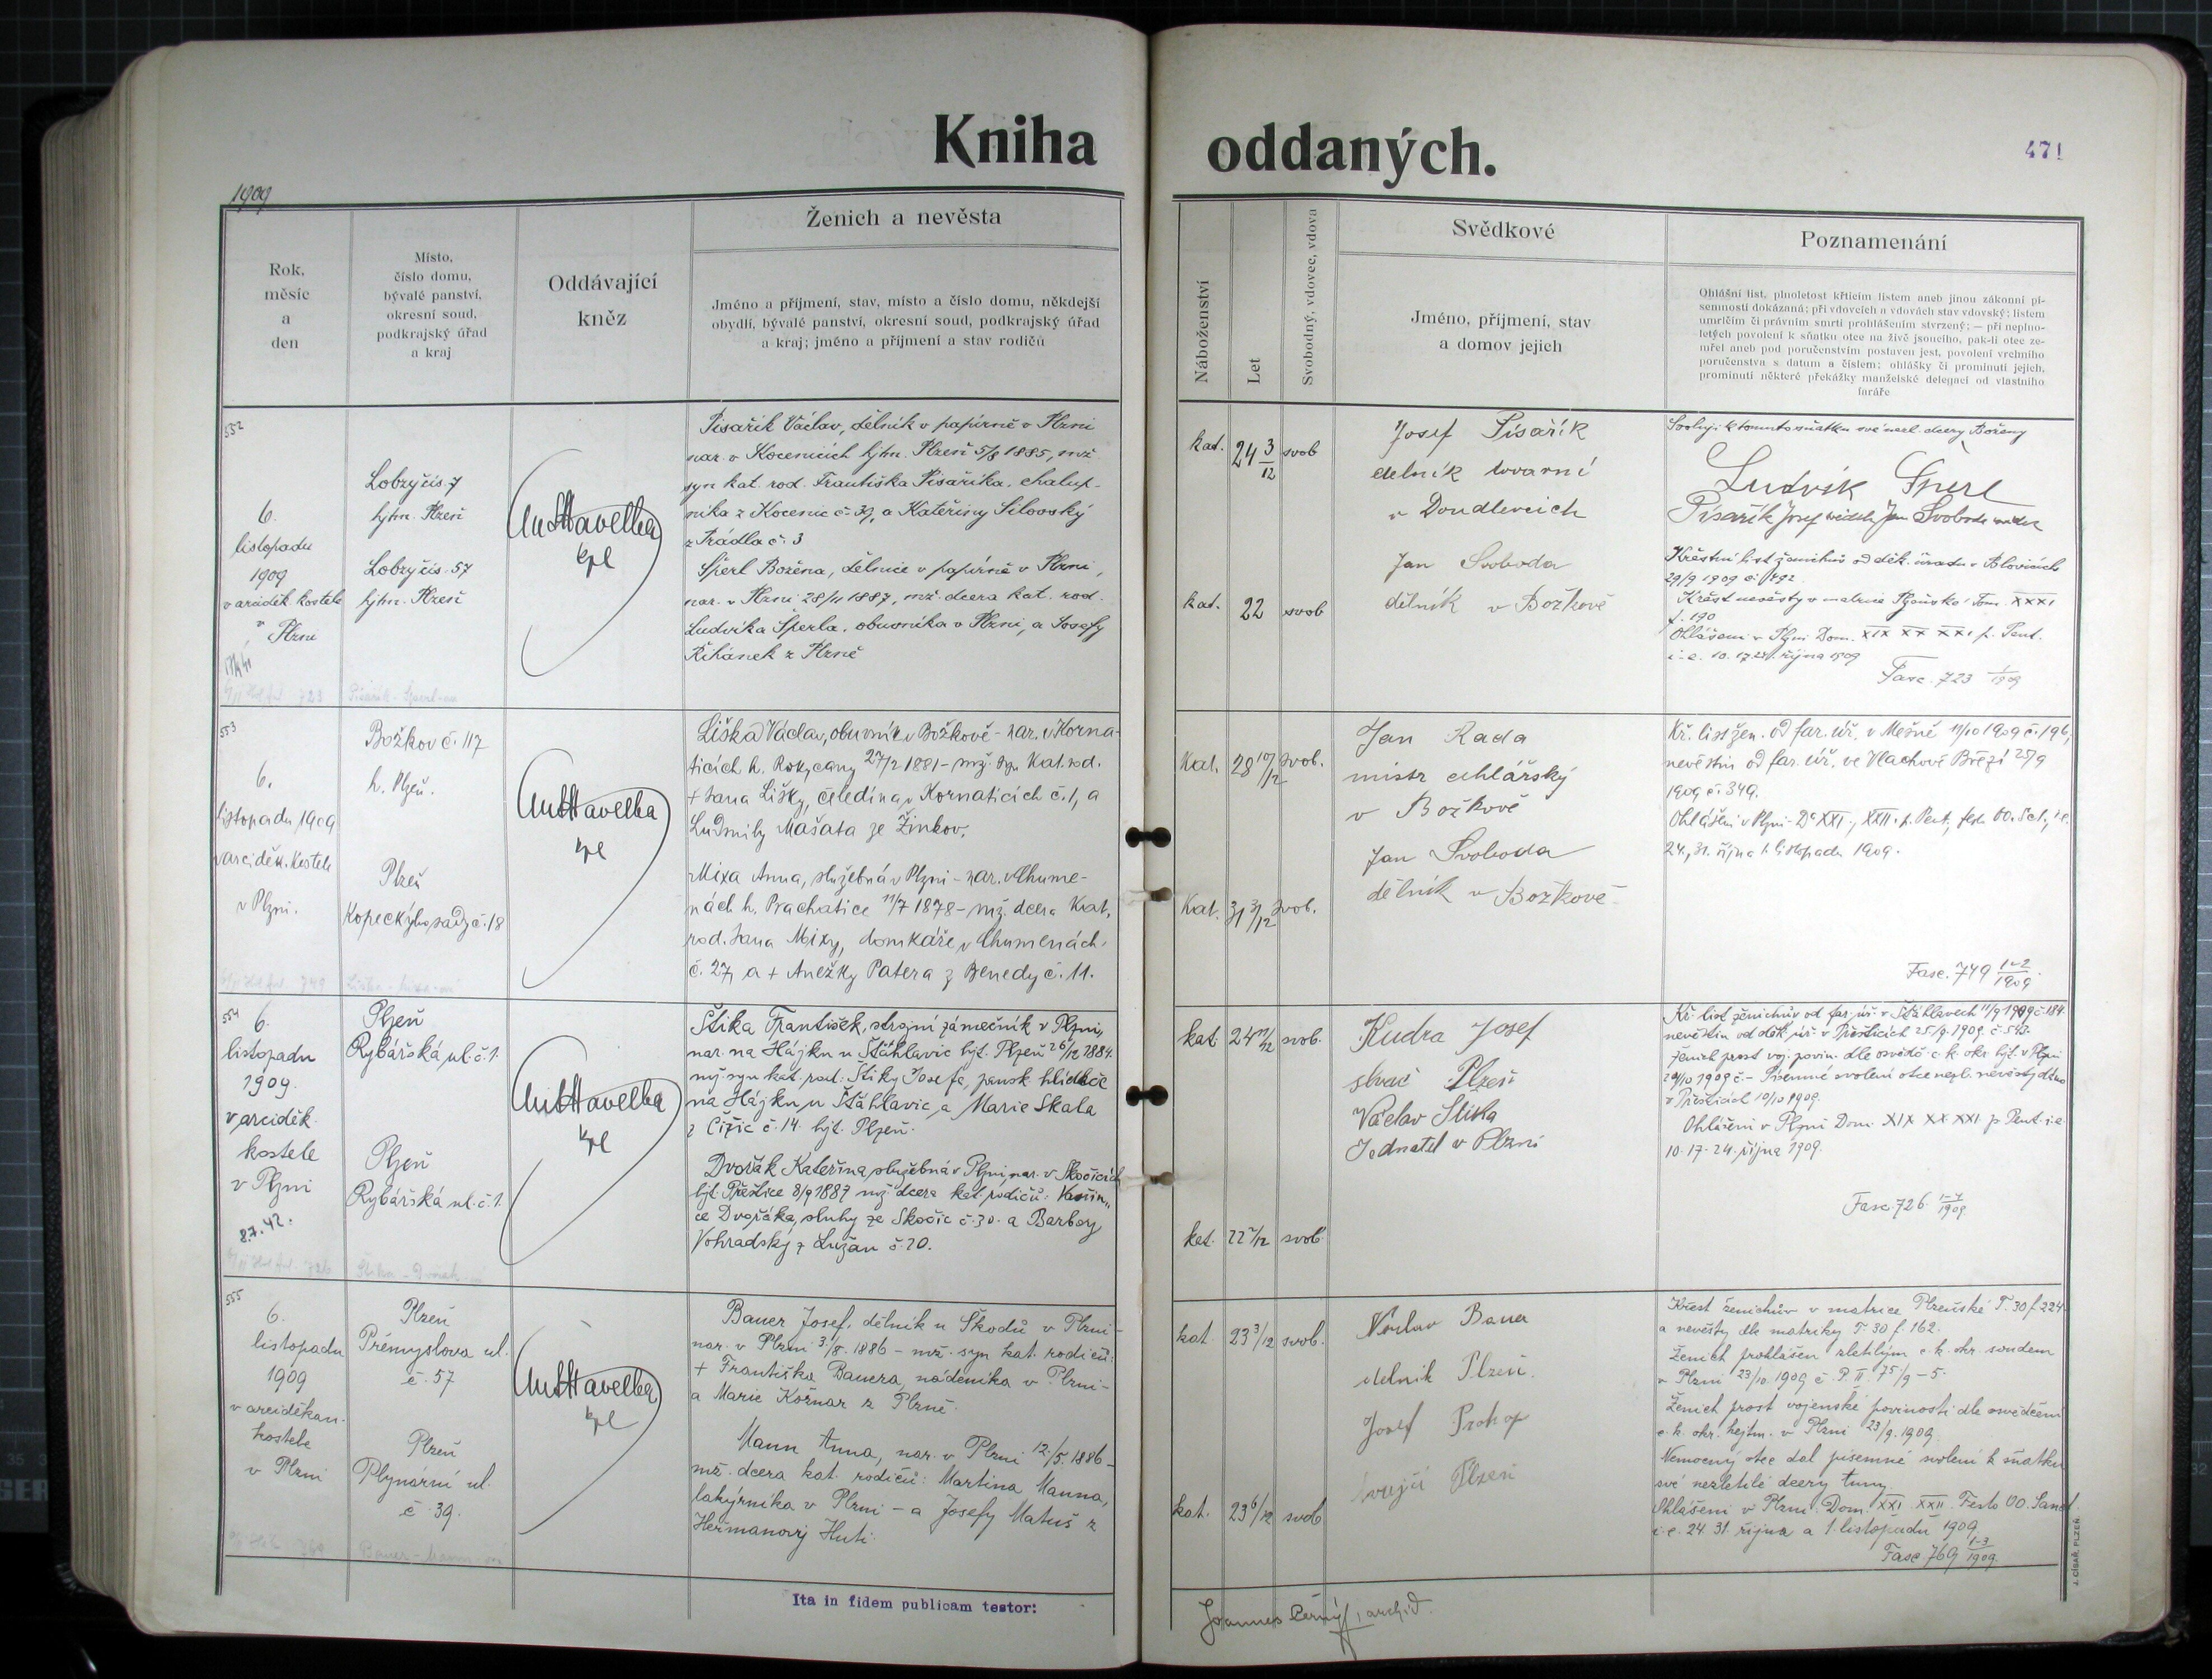 Kniha oddaných.
471
1909
Rok,
měsíc
a
den
Místo,
číslo domu,
bývalé panství,
okresní soud,
podkrajský úřad
a kraj
Oddávající
kněz
Ženich a nevěsta
Jméno a příjmení, stav, místo a číslo domu, někdejší
obydlí, bývalé panství, okresní soud, podkrajský úřad
a kraj; jméno a příjmení a stav rodičů
Náboženství
Let
Svobodný, vdovec, vdova
Svědkové
Jméno, příjmení, stav
a domov jejich
Poznamenání
Ohlášní list, plnoletost křticím listem aneb jinou zákonní pí-
semností dokázaná; při vdovcích a vdovách stav vdovský; listem
umrlčím či právním smrti prohlášením stvrzený; — při neplno-
letých povolení k sňatku otce na živě jsoucího, pak-li otec ze-
mřel aneb pod poručenstvím postaven jest, povolení vrchního
poručenstva s datum a číslem; ohlášky či prominutí jejich,
prominutí některé překážky manželské delegací od vlastního
faráře
552
6.
listopadu
1909
v arciděk. kostele
v Plzni
Lobzy čís. 7
hjtm. Plzeň
Lobzy čís. 57
hjtm. Plzeň
Ant Havelka
kpl
Pisařík Václav, dělník v papírně v Plzni
nar. v Kocenicích hjtm. Plzeň 5/8 1885, mž.
syn kat. rod. Františka Pisaříka, chalup-
níka z Kocenic č. 39, a Kateřiny Silovský
z Prádla č. 3
Šperl Božena, dělnice v papírně v Plzni,
nar. v Plzni 28/11 1887, mž. dcera kat. rod.
Ludvíka Šperla, obuvníka v Plzni, a Josefy
Řihánek z Plzně
kat. 24 3/12 svob
kat. 22 svob
Josef Písařík
delník tovarní
v Doudlevcich
Jan Svoboda
dělník v Božkově
Svoluji k tomuto sňatku své nezl. dcery Boženy
Ludvík Šperl
Písařík Josef svědek Jan Svoboda svědek
Křestní list ženichův od děk. úradu v Blovicích
29/9 1909 čís. 492
Křest nevěsty v matrice Plzeňské Tom. XXXI
f. 190
Ohlášeni v Plzni Dom. XIX XX XXI p. Pent.
i. e. 10. 17. 24. října 1909
Fasc. 723 1/1909
553
6.
listopadu 1909
v arciděk. kostele
v Plzni.
Božkov č. 117
h. Plzeň.
Plzeň
Kopeckýho sady č. 18
Ant Havelka
kpl
Liška Václav, obuvník v Božkově - nar. v Korna-
ticích h. Rokycany 27/2 1881 - mž. syn kat. rod.
+ Jana Lišky, čeledína v Kornaticích č. 1, a
Ludmily Mašata ze Žinkov.
Mixa Anna, služebná v Plzni - nar. v Chume-
nách h. Prachatice 11/7 1878 - mž. dcera kat.
rod. Jana Mixy, domkáře v Chumenách
č. 27, a + Anežky Patera z Benedy č. 11.
Kat. 28 svob.
Kat. 31 3/12 svob.
Jan Rada
mistr truhlářský
v Božkově
Jan Svoboda
dělník v Božkově
Kř. list žen. od far. úř. v Mešně 11/10 1909 č. 196,
nevěstin od far. úř. ve Vlachově Březí 25/9
1909 č. 349.
Ohlášeni v Plzni - De XXI., XXII. p. Pent., festo OO. Sct., i.e.
24., 31. října 1. listopadu 1909.
Fasc. 749 1-2/1909
554
6.
listopadu
1909.
v arciděk.
kostele
v Plzni
8.7.42.
Plzeň
Rybářská ul. č. 1.
Plzeň
Rybářská ul. č. 1.
Ant Havelka
kpl
Štika František, strojní zámečník v Plzni,
nar. na Hájku u Šťáhlavic hjt. Plzeň 26/12 1884.
mž. syn kat. rod.: Štiky Josefa, pansk. hlídače
na Hájku u Šťáhlavic, a Marie Skala
z Čižic č. 14. hjt. Plzeň.
Dvořák Kateřina, služebná v Plzni, nar. v Skočicích
hjt. Přeštice 8/9 1887 mž. dcera kat. rodičů: Vavřin-
ce Dvořáka, sluhy ze Skočic č. 30. a Barbory
Vohradský z Lužan č. 20.
kat. 24 svob.
kat. 22 svob.
Kudra Josef
Plzeň
Václav Štika
Jednatel v Plzni
Kř. list ženichův od far. úř. v Šťáhlavech 11/9 1909 č. 184.
nevěstin od děk. úř. v Přešticích 25/9. 1909. č. 543.
Ženich prost voj. povin. dle osvědč. c. k. okr. hjt. v Plzni
1909 č. - Písemné svolení otce nezl. nevěsty dtto
v Přešticích 10/10 1909.
Ohlášeni v Plzni Dom. XIX XX XXI. p. Pent. i. e.
10. 17. 24. října 1909.
Fasc. 726 1-4/1909
555
6.
listopadu
1909
v arciděkan.
kostele
v Plzni
Plzeň
Přemyslova ul.
č. 57
Plzeň
Plynární ul.
č. 39.
Ant Havelka
kpl
Bauer Josef, dělník u Škodů v Plzni -
nar. v Plzni 3/8. 1886 - mž. syn kat. rodičů:
+ Františka Bauera, nádeníka v Plzni -
a Marie Kožnar z Plzně.
Mann Anna, nar. v Plzni 12./5. 1886 -
mž. dcera kat. rodičů: Martina Manna,
lakýrníka v Plzni - a Josefy Matuš z
Heřmanovy Huti.
kat. 23 3/12 svob.
kat. 23 6/12 svob
Václav Bauer
delnik Plzeň.
Josef Prokop
Plzeň
Křest ženichův v matrice Plzeňské T. 30 f. 224.
a nevěsty dle matriky T. 30 f. 162.
Ženich prohlášen zletilým c. k. okr. soudem
v Plzni 23/10. 1909 č. P. II. 75/9 - 5.
Ženich prost vojenské povinosti dle osvědčení
c. k. okr. hejtm. v Plzni 23/9. 1909.
Nemocný otec dal písemné svolení k sňatku
své nezletilé dcery Anny.
Ohlášeni v Plzni: Dom. XXI. XXII. Festo OO. Sanct.
i. e. 24. 31. října a 1. listopadu 1909.
Fasc 769 1-3/1909.
Ita in fidem publicam testor:
Joannes Černý, archid.
J. CÍSAŘ, PLZEŇ.